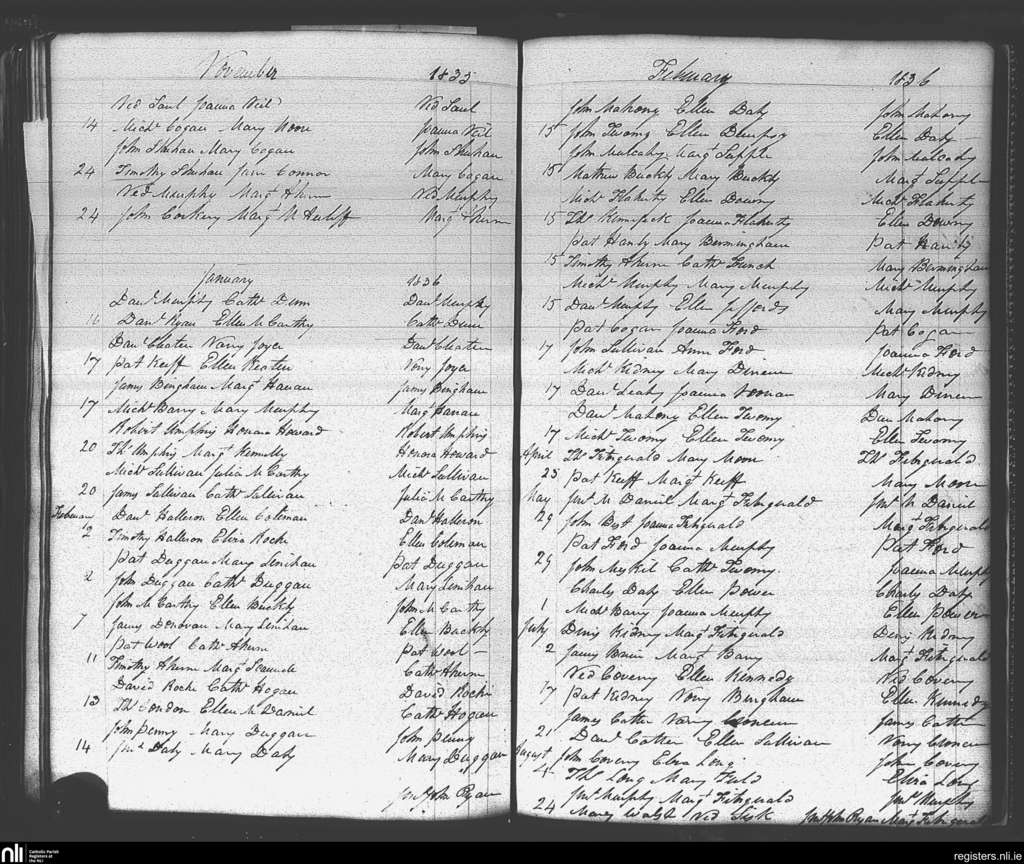 November 1835
Ned Saul Joanna Neil Ned Saul
14 Michl Cogan Mary Moore Joanna Neil
John Shehan Mary Cogan John Shehan
24 Timothy Shehan Jane Connor Mary Cogan
Ned Murphy Margt Ahern Ned Murphy
24 John Corkery Margt McAuliff Margt Ahern
January 1836
Danl Murphy Cathe Dunn Danl Murphy
16 Danl Ryan Ellen McCarthy Cathe Dunn
Danl Charten Nory Joyce Danl Charten
17 Pat Keeff Ellen Keaten Nory Joyce
Jamy Bingham Margt Hanan Jamy Bingham
17 Michl Barry Mary Murphy Margt Hanan
Robert Umphris Honora Howard Robert Umphris
20 Ths Umphris Margt Kennelly Honora Howard
Michl Sullivan Julia McCarthy Michl Sullivan
20 Jamy Sullivan Cathe Sullivan Julia McCarthy
February Danl Halleron Ellen Coleman Danl Halleron
2 Timothy Halleron Elvia Roche Ellen Coleman
Pat Duggan Mary Linihan Pat Duggan
2 John Duggan Cathe Duggan Mary Linihan
John McCarthy Ellen Buckly John McCarthy
7 Jamy Donovan Mary Linihan Ellen Buckly
Pat Wool Cathe Ahern Pat Wool
11 Timothy Ahern Margt Cathe Ahern
David Roche Cathe Hogan David Roche
13 Ths Condon Ellen McDaniel Cathe Hogan
John Penny Mary Duggan John Penny
14 Jno Daly Mary Daly Mary Duggan
John Ryan
February 1836
John Mahony Ellen Daly John Mahony
15 John Twomy Ellen Dempsy Ellen Daly
John Mulcahy Margt Supple John Mulcahy
15 Mathew Buckly Mary Buckly Margt Supple
Michl Flaherty Ellen Downy Michl Flaherty
15 Ths Kennifeck Joanna Flaherty Ellen Downy
Pat Hanly Mary Bermingham Pat Hanly
15 Timothy Ahern Cathe Mary Bermingham
Michl Murphy Mary Murphy Michl Murphy
15 Danl Murphy Ellen Jeffords Mary Murphy
Pat Cogan Joanna Ford Pat Cogan
17 John Sullivan Anne Ford Joanna Ford
Michl Kidney Mary Dineen Michl Kidney
17 Danl Leahy Joanna Noonan Mary Dineen
Danl Mahony Ellen Twomy Dan Mahony
17 Michl Twomy Ellen Twomy Ellen Twomy
April Ths Fitzgerald Mary Moore Ths Fitzgerald
25 Pat Keeff Margt Keeff Mary Moore
May Jno McDaniel Margt Fitzgerald Jno McDaniel
29 John Best Joanna Fitzgerald Margt Fitzgerald
Pat Ford Joanna Murphy Pat Ford
29 John Cathe Twomy Joanna Murphy
Charly Daly Ellen Power Charly Daly
1 Michl Barry Joanna Murphy Ellen Power
July Denis Kidney Margt Fitzgerald Denis Kidney
2 Jamy Margt Barry Margt Fitzgerald
Ned Coveny Ellen Kennedy Ned Coveny
17 Pat Kidney Nory Bingham Ellen Kennedy
James Cotter Nory James Cotter
21 Danl Cotter Ellen Sullivan Nory
August John Coveny Elvia Long John Coveny
4 Ths Long Mary Elvia Long
Jno Murphy Margt Fitzgerald Jno Murphy
24 Maney Walsh Ned John Ryan Margt Fitzgerald
nli
Catholic Parish
Registers at
the NLI
registers.nli.ie